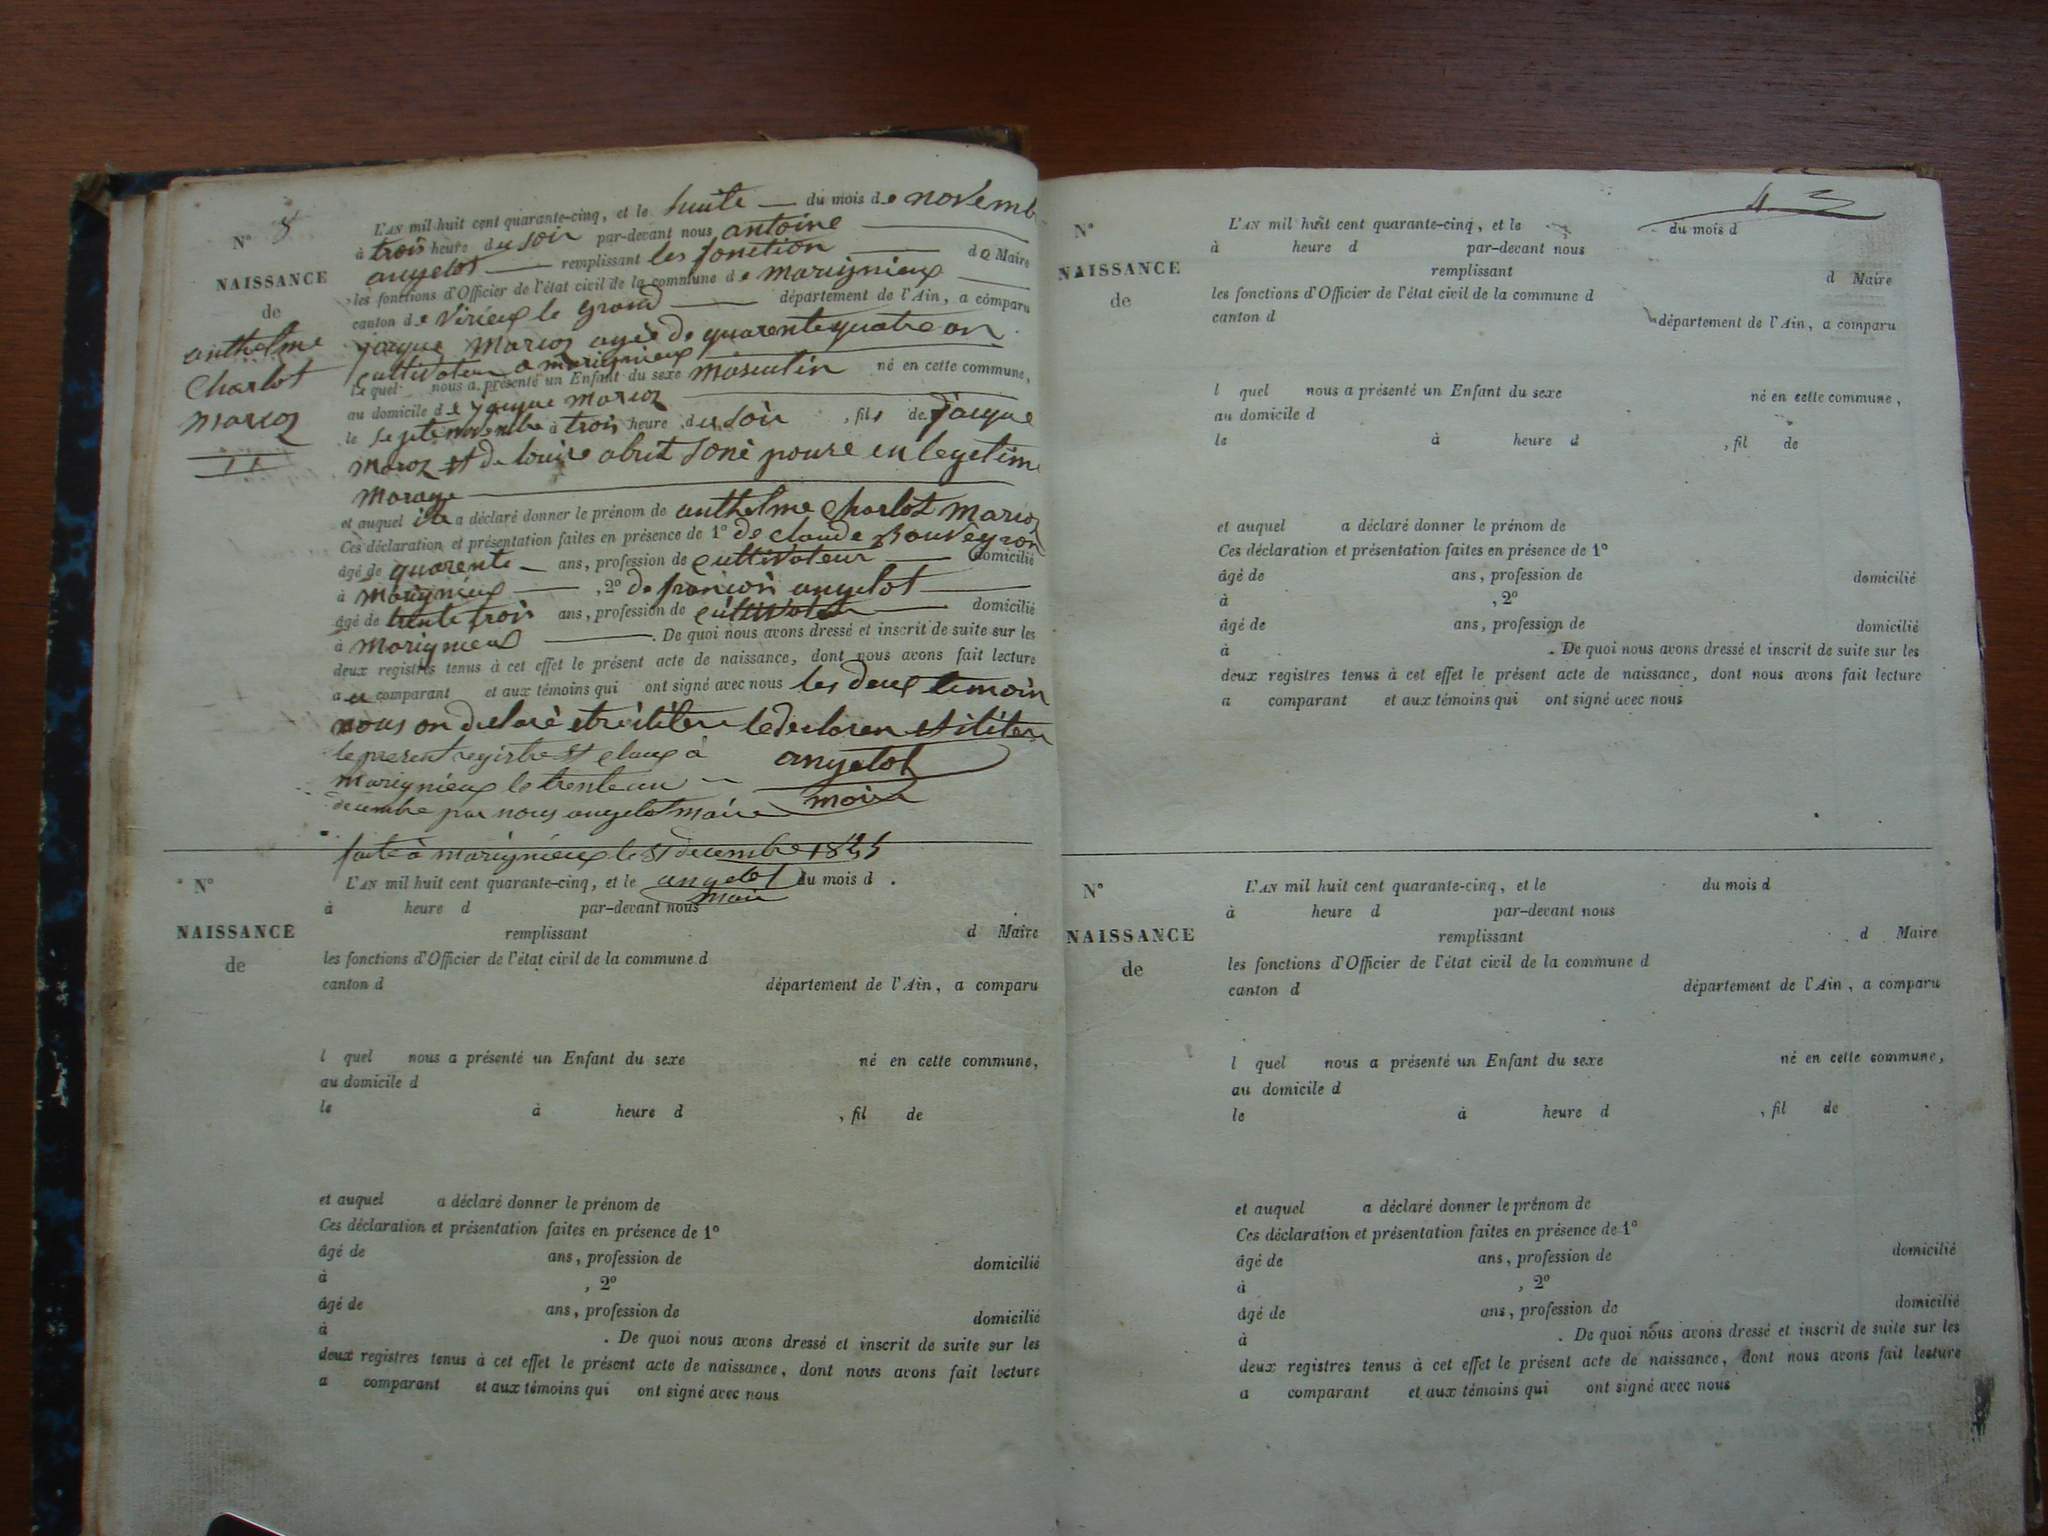 N° 8
NAISSANCE
de
anthelme
Charlot
marcoz
L'AN mil huit cent quarante-cinq, et le huite du mois de novemb
à trois heure du soir par-devant nous antoine
angelot remplissant les fonction de Maire
les fonctions d'Officier de l'état civil de la commune de marignieux
canton de virieux le grand département de l'Ain, a comparu
jacque marcoz agée de quarentequatre an
cultivateur a marignieux
le quel nous a présenté un Enfant du sexe masculin né en cette commune,
au domicile de jacque marcoz
le septe novembre à trois heure du soir, fils de jacque
marcoz et de louise abrit soné poure en legetime
marage
et auquel ila a déclaré donner le prénom de anthelme charlot marcoz
Ces déclaration et présentation faites en présence de 1° de claude Bouveyron
âgé de quarente ans, profession de cultivateur domicilié
à marignieux, 2° de françois angelot
âgé de trente trois ans, profession de cultivateur domicilié
à marignieux. De quoi nous avons dressé et inscrit de suite sur les
deux registres tenus à cet effet le présent acte de naissance, dont nous avons fait lecture
au comparant et aux témoins qui ont signé avec nous les deux temoin
nous on declaré etre iliterre le declaren et iliterre
le present registre et cloux à angelot
marignieux le trente un maire
decembre par nous angelot maire
faite à marignieux le 31 decembre 1845
angelot
maire
N°
NAISSANCE
de
L'AN mil huit cent quarante-cinq, et le du mois d
à heure d par-devant nous
remplissant d Maire
les fonctions d'Officier de l'état civil de la commune d
canton d département de l'Ain, a comparu
l quel nous a présenté un Enfant du sexe né en cette commune,
au domicile d
le à heure d , fil de
et auquel a déclaré donner le prénom de
Ces déclaration et présentation faites en présence de 1°
âgé de ans, profession de domicilié
à , 2°
âgé de ans, profession de domicilié
à . De quoi nous avons dressé et inscrit de suite sur les
deux registres tenus à cet effet le présent acte de naissance, dont nous avons fait lecture
a comparant et aux témoins qui ont signé avec nous
N°
NAISSANCE
de
L'AN mil huit cent quarante-cinq, et le du mois d
à heure d par-devant nous
remplissant d Maire
les fonctions d'Officier de l'état civil de la commune d
canton d département de l'Ain, a comparu
l quel nous a présenté un Enfant du sexe né en cette commune,
au domicile d
le à heure d , fil de
et auquel a déclaré donner le prénom de
Ces déclaration et présentation faites en présence de 1°
âgé de ans, profession de domicilié
à , 2°
âgé de ans, profession de domicilié
à . De quoi nous avons dressé et inscrit de suite sur les
deux registres tenus à cet effet le présent acte de naissance, dont nous avons fait lecture
a comparant et aux témoins qui ont signé avec nous
N°
NAISSANCE
de
L'AN mil huit cent quarante-cinq, et le du mois d
à heure d par-devant nous
remplissant d Maire
les fonctions d'Officier de l'état civil de la commune d
canton d département de l'Ain, a comparu
l quel nous a présenté un Enfant du sexe né en cette commune,
au domicile d
le à heure d , fil de
et auquel a déclaré donner le prénom de
Ces déclaration et présentation faites en présence de 1°
âgé de ans, profession de domicilié
à , 2°
âgé de ans, profession de domicilié
à . De quoi nous avons dressé et inscrit de suite sur les
deux registres tenus à cet effet le présent acte de naissance, dont nous avons fait lecture
a comparant et aux témoins qui ont signé avec nous